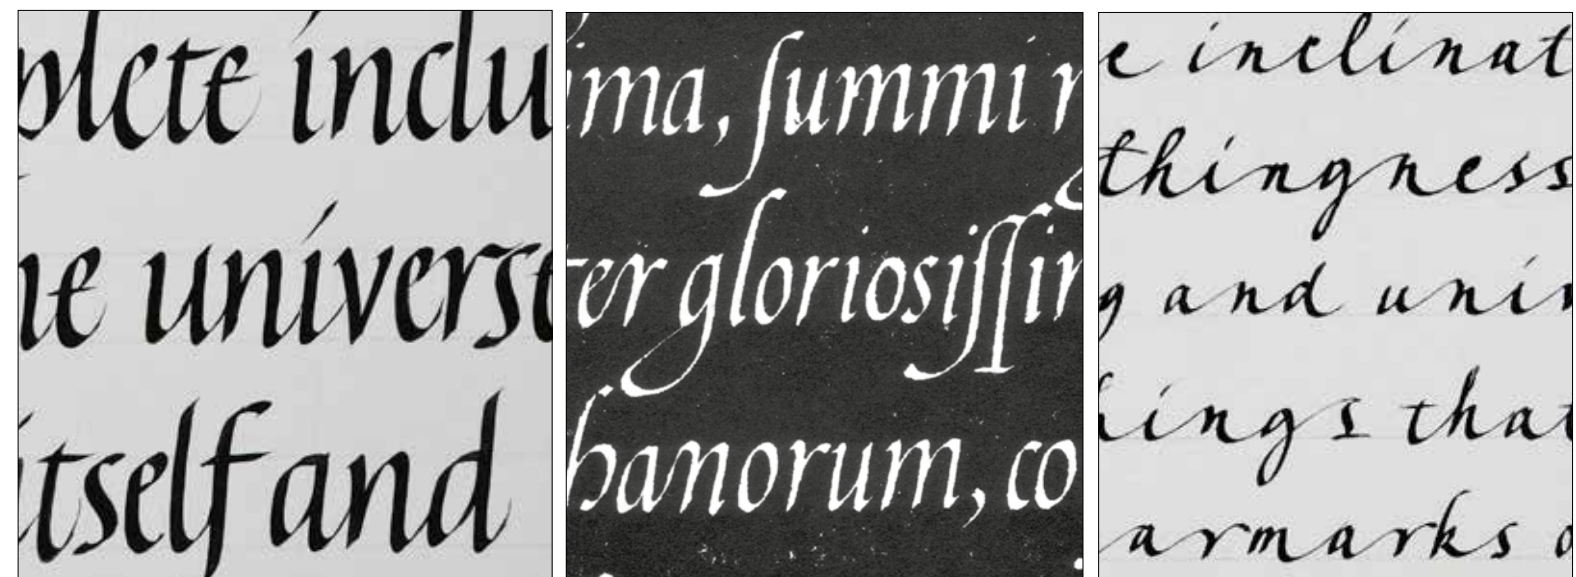 plete inclu
he universe
itself and
ima, ſummi n
ter glorioſiſſim
hanorum, co
e inclinat
thingness
g and univ
hings that
armarks o